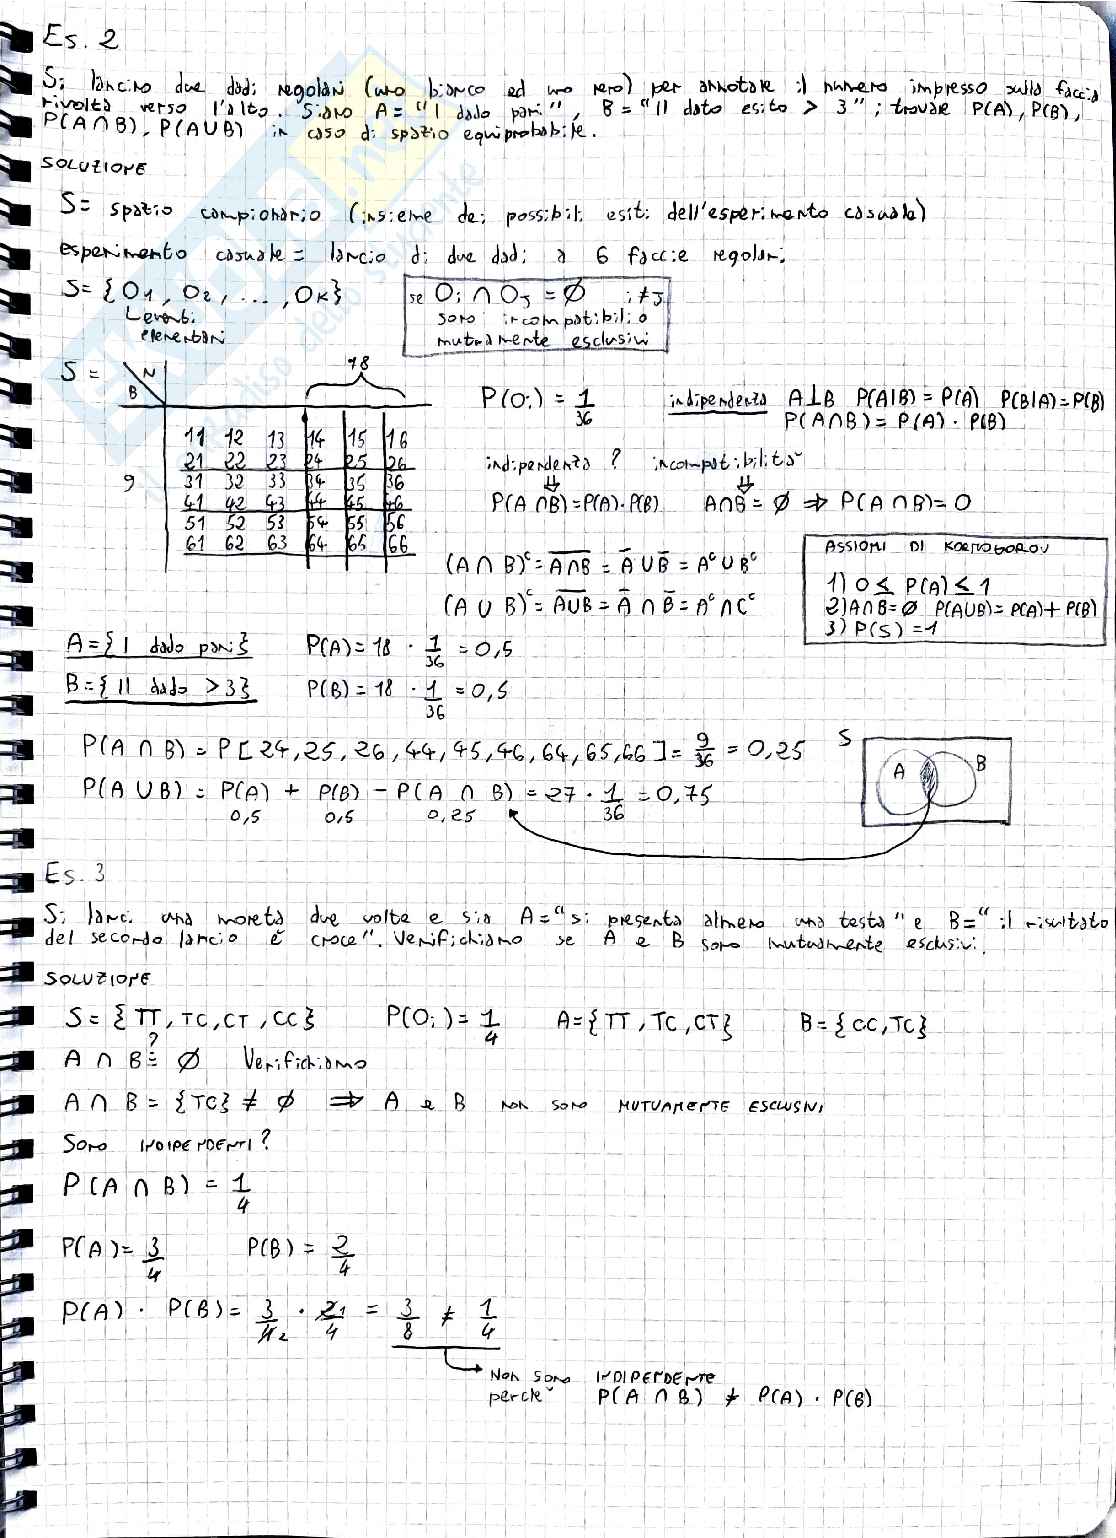 Es. 2
Si lancino due dadi regolari (uno bianco ed uno nero) per annotare il numero impresso sulla faccia
rivolta verso l'alto. Siano A = "I dado pari", B = "II dato esito > 3"; trovare P(A), P(B),
P(A∩B), P(A∪B) in caso di spazio equiprobabile.
SOLUZIONE
S = spazio campionario (insieme dei possibili esiti dell'esperimento casuale)
esperimento casuale = lancio di due dadi a 6 faccie regolari
S = {O1, O2, ..., OK}
↳ eventi
elementari
se Oi ∩ OJ = ∅ i≠J
sono incompatibili o
mutuamente esclusivi
S =
N
B
18
11 12 13 14 15 16
21 22 23 24 25 26
9
31 32 33 34 35 36
41 42 43 44 45 46
51 52 53 54 55 56
61 62 63 64 65 66
P(Oi) = 1/36
indipendenza A⊥B P(A|B) = P(A) P(B|A) = P(B)
P(A∩B) = P(A) · P(B)
indipendenza ? incompatibilità
⇓ ⇓
P(A∩B) = P(A)·P(B) A∩B = ∅ ⇒ P(A∩B) = 0
(A∩B)ᶜ = A̅∩̅B̅ = A̅ ∪ B̅ = Aᶜ ∪ Bᶜ
(A∪B)ᶜ = A̅∪̅B̅ = A̅ ∩ B̅ = Aᶜ ∩ Cᶜ
ASSIOMI DI KOLMOGOROV
1) 0 ≤ P(A) ≤ 1
2) A∩B = ∅ P(A∪B) = P(A) + P(B)
3) P(S) = 1
A = {I dado pari} P(A) = 18 · 1/36 = 0,5
B = {II dado > 3} P(B) = 18 · 1/36 = 0,5
P(A∩B) = P[24, 25, 26, 44, 45, 46, 64, 65, 66] = 9/36 = 0,25
S
A B
P(A∪B) = P(A) + P(B) - P(A∩B) = 27 · 1/36 = 0,75
0,5 0,5 0,25
Es. 3
Si lanci una moneta due volte e sia A = "si presenta almeno una testa" e B = "il risultato
del secondo lancio è croce". Verifichiamo se A e B sono mutuamente esclusivi.
SOLUZIONE
S = {TT, TC, CT, CC} P(Oi) = 1/4 A = {TT, TC, CT} B = {CC, TC}
?
A ∩ B = ∅ Verifichiamo
A ∩ B = {TC} ≠ ∅ ⇒ A e B NON SONO MUTUAMENTE ESCLUSIVI
SONO INDIPENDENTI?
P(A ∩ B) = 1/4
P(A) = 3/4 P(B) = 2/4
P(A) · P(B) = 3/4 2 · 2 1/4 = 3/8 ≠ 1/4
NON SONO INDIPENDENTE
perché P(A ∩ B) ≠ P(A) · P(B)